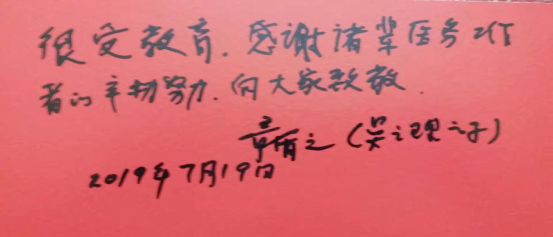 很受教育.感谢诸辈医务工作
者的辛勤努力.向大家致敬.
章有之(吴之理之子)
2019年7月19日